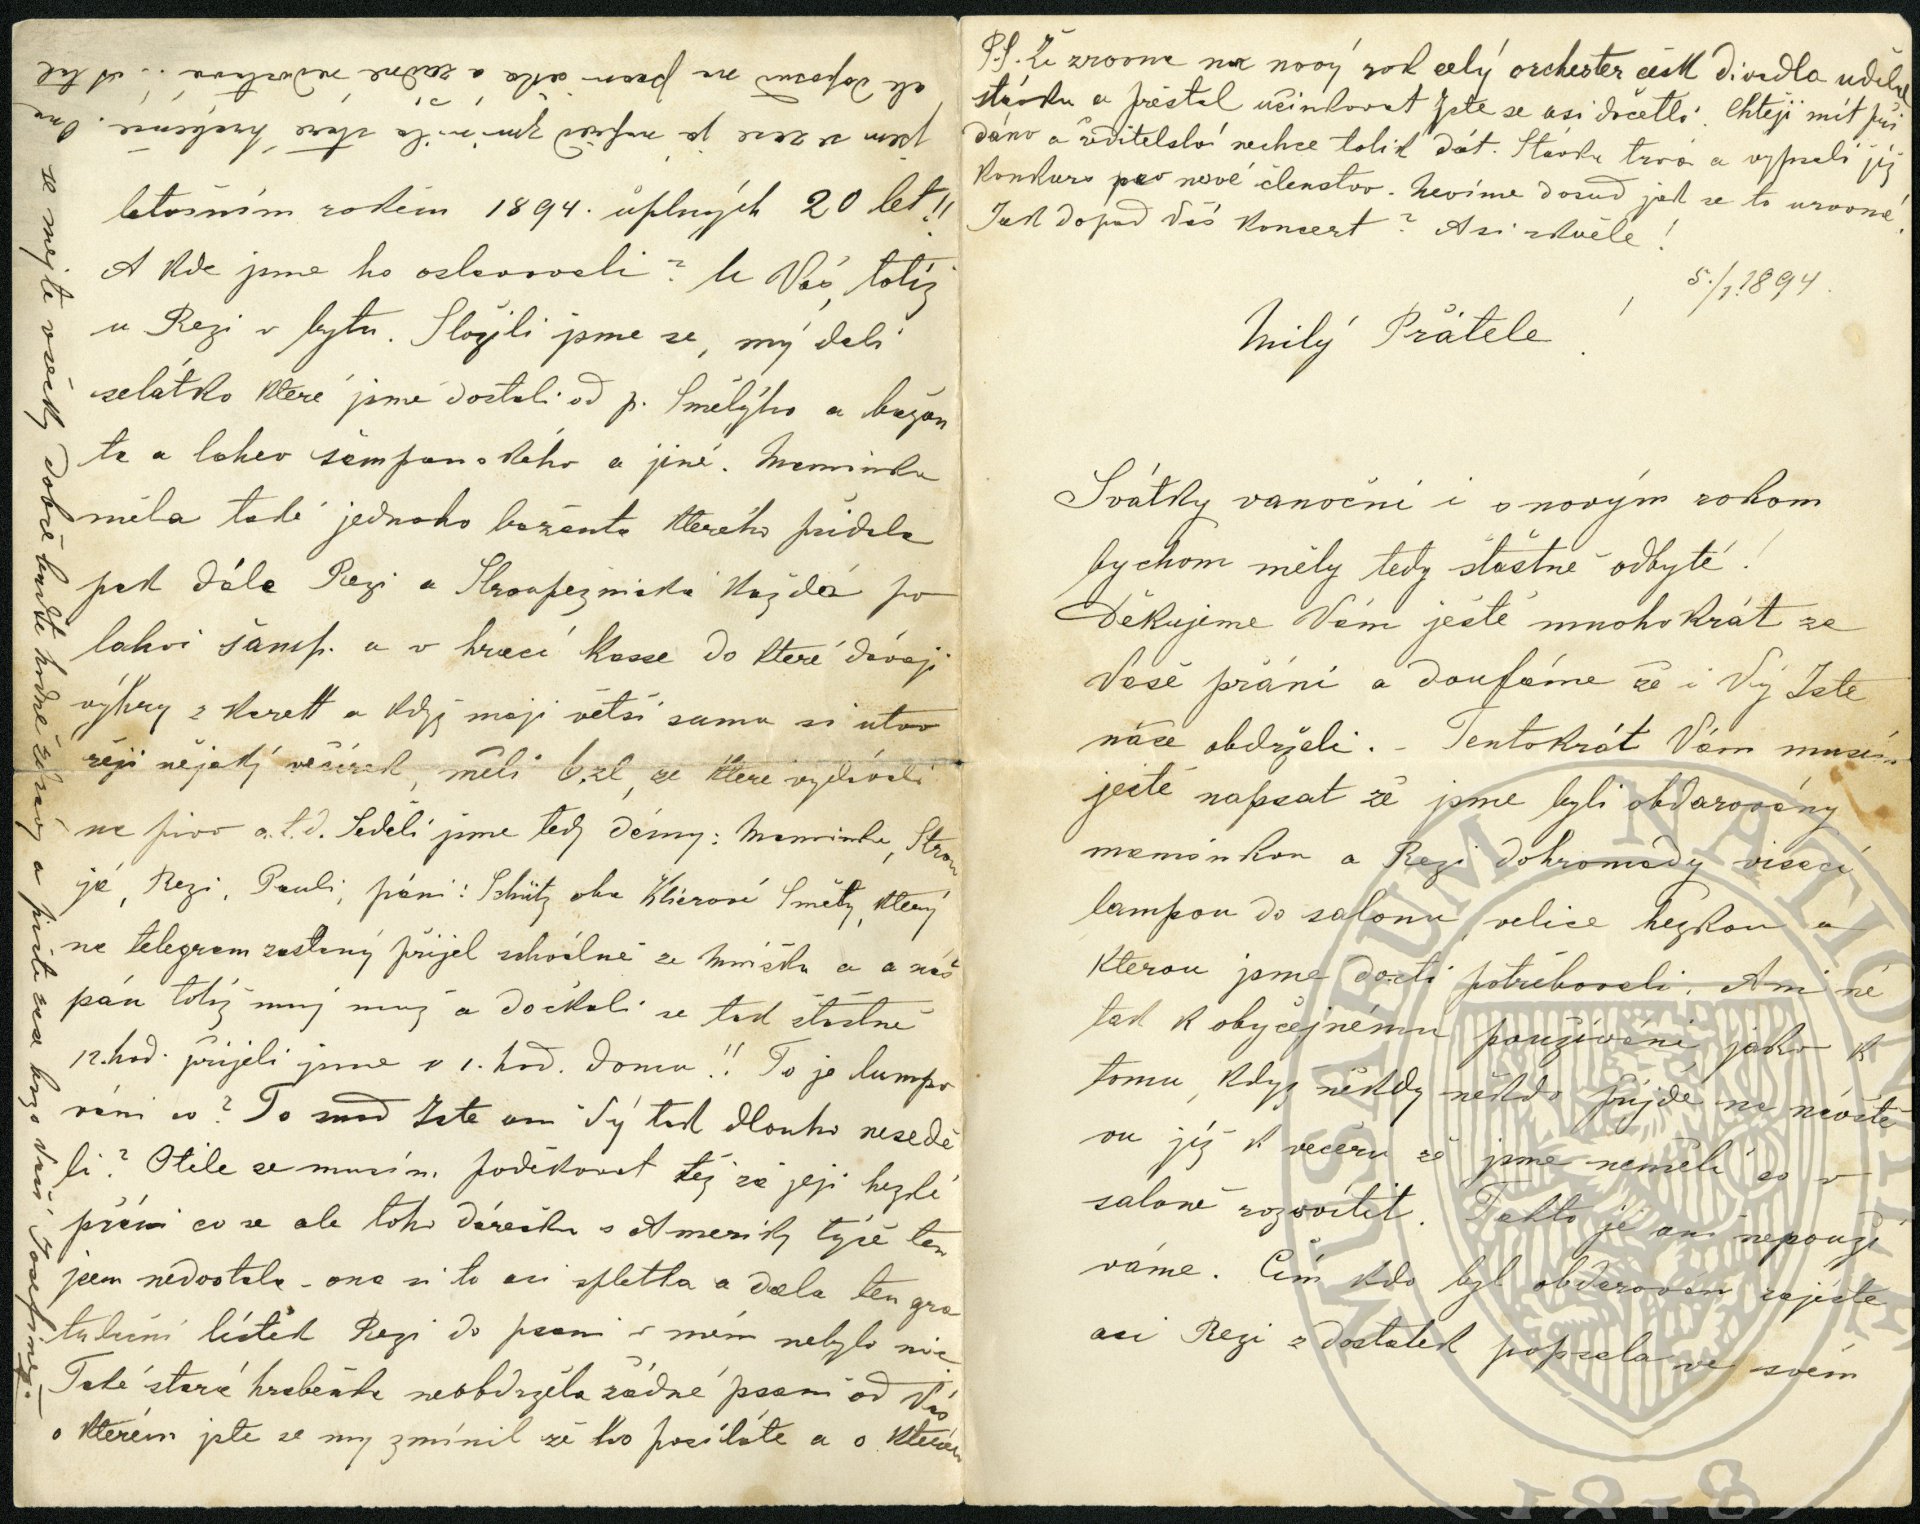 P.S. Že zrovna na nový rok celý orchester česk divadla udělal
stávku a přestal učinkovat Jste se asi dočetli. Chtějí mít při
dáno a ředitelství nechce tolik dát. Stávka trvá a vypsali již
konkurs pro nové členstvo. Nevíme dosud jak se to urovná!
Jak dopad Váš koncert? Asi skvěle!
5./1. 1894.
Milý Přátele!
Svátky vanoční i s novým rokem
bychom měly tedy šťastně odbyté!
Děkujeme Vám ještě mnohokrát za
Vaše přání a doufáme že i Vy Jste
náše obdrželi. – Tentokrát Vám musím
ještě napsat že jsme byli obdarovány
maminkou a Rezi dohromady visací
lampou do salonu velice hezkou a
kterou jsme dosti potřebovali. Ani ne
tak k obyčejnému používání jako k
tomu, když někdy někdo přijde na návště
vu již k večeru že jsme neměli co v
saloně rozsvítit. Takto je ani nepouží
váme. Čím kdo byl obdarován zajisté
asi Rezi z dostatek popsala ve svém
letošním rokem 1894. úplných 20 let!!
A kde jsme ho oslavovali? U Vás, totiž
u Rezi v bytu. Složili jsme se, my dali
selátko které jsme dostali od p. Smělýho a bažan
ta a lahev šampanského a jiné. Maminka
měla také jednoho bažanta kterého přidala
pak dále Rezi a Stroupežnická každá po
lahvi šamp. a v hrací kasse do které dávají
výhry z karett a když mají větší sumu si utvo
řejí nějaký večírek, měli 6 zl, ze které vydávali
na pivo a.t.d. Seděli jsme tedy dámy: Maminka, Strou
já, Rezi, Pauli, páni: Schütz oba Klierové Smělý, který
na telegram zaslaný přijel schválně ze Mníšku a a náš
pán totiž muj muž a dočkali se tak šťastně
12. hod. přijeli jsme v 1. hod. domu!! To je lumpo
vání co? To snad Jste ani Vy tak dlouho nesedě
li? Otile se musím poděkovat též za její hezké
přání co se ale toho dárečku s Ameriky týče ten
jsem nedostala – ona si to asi spletla a dala ten gra
tulační lístek Rezi do psaní v mém nebylo nic.
Také stará hraběnka neobdržela žádné psaní od Vás
o kterém jste se my zmínil že ho posíláte a o kterém
jsem se zase já napřed zmínila staré hraběnce. Ona
ale doposud na psaní čeká a žádné nedostává. A tak
se mejte všecky dobře buďte hodně zdrávy a pište nás brzo Vaší Josefíne.
MUSAEUM NATIONALE
1818